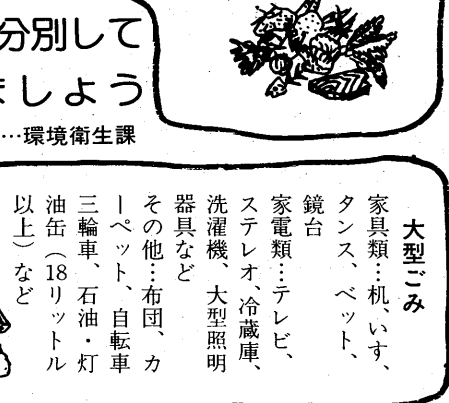 分別して
ましょう
…環境衛生課
大型ごみ
家具類…机、いす、
タンス、ベット、
鏡台
家電類…テレビ、
ステレオ、冷蔵庫、
洗濯機、大型照明
器具など
その他…布団、カ
ーペット、自転車
三輪車、石油・灯
油缶（18リットル
以上）など